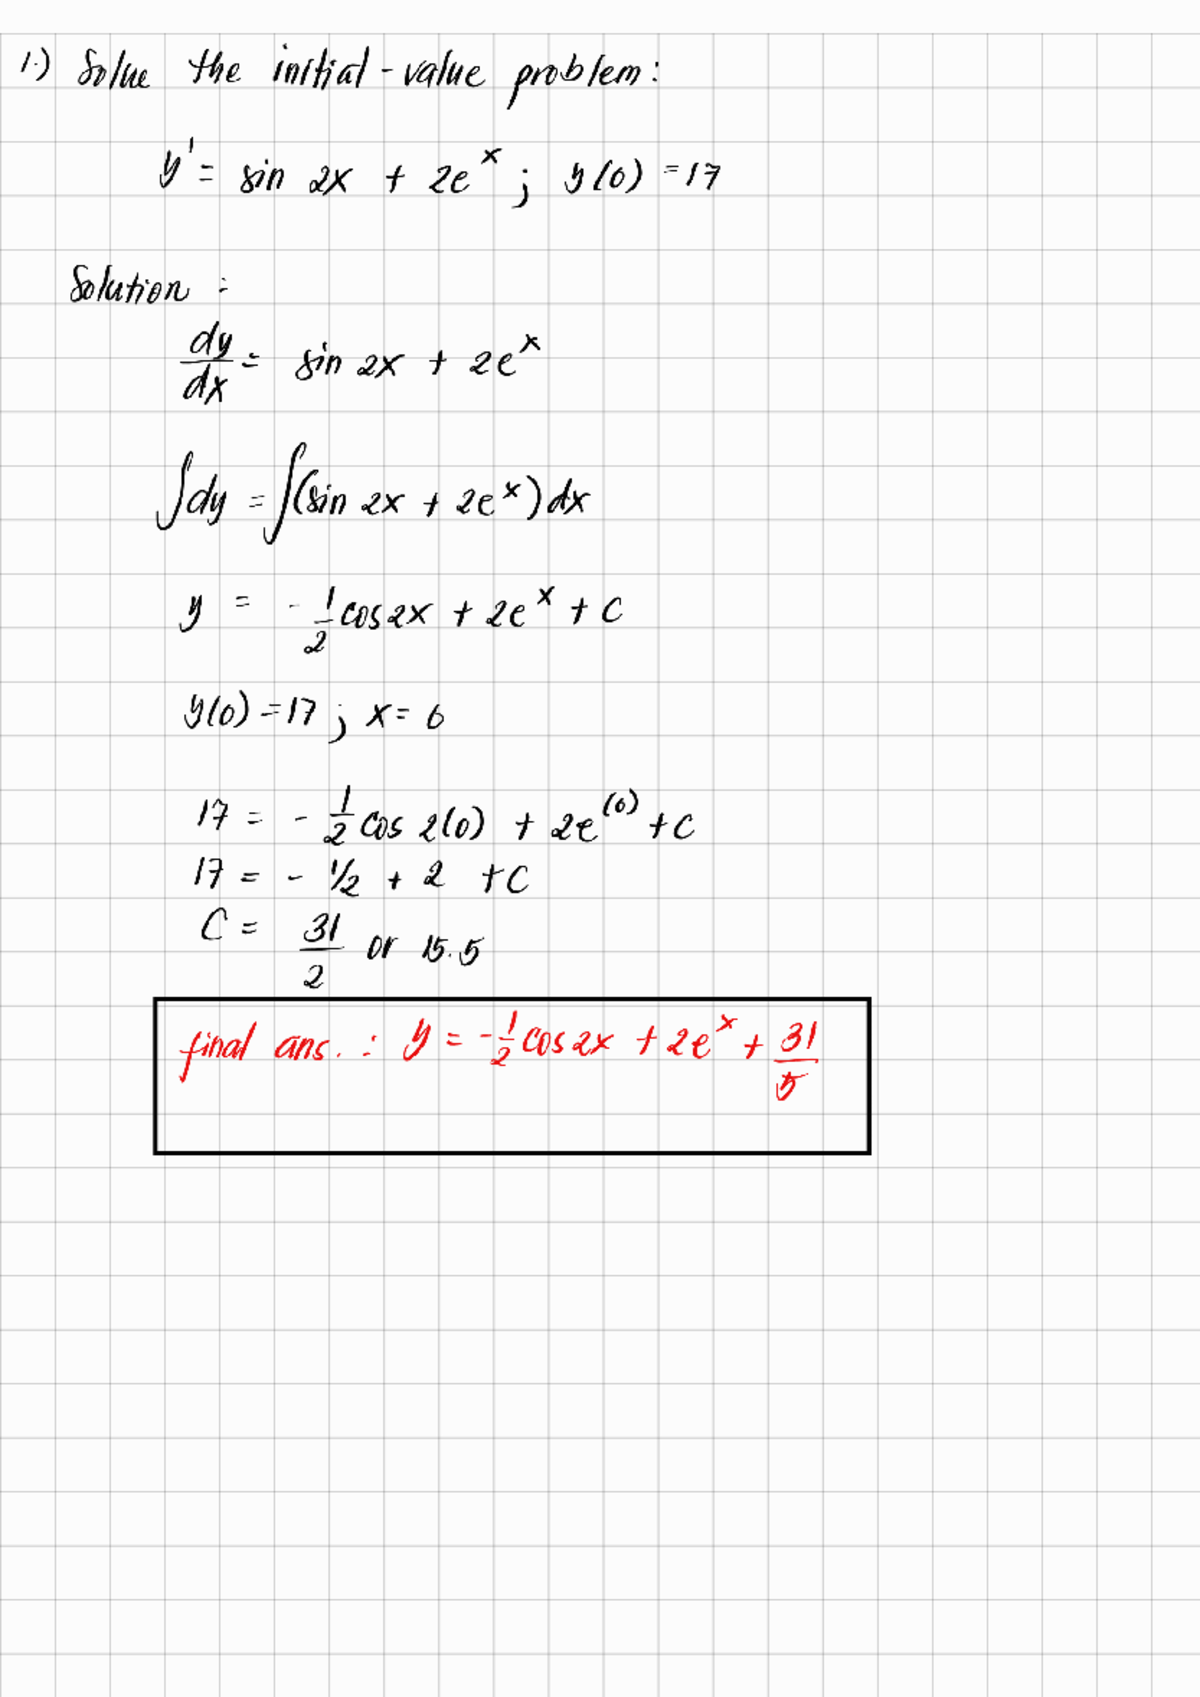 1.) Solve the initial-value problem:
y' = sin 2x + 2e^x ; y(0) = 17
Solution :
dy/dx = sin 2x + 2e^x
∫dy = ∫(sin 2x + 2e^x) dx
y = - 1/2 cos 2x + 2e^x + C
y(0) = 17 ; x = 0
17 = - 1/2 cos 2(0) + 2e^(0) + C
17 = - 1/2 + 2 + C
C = 31/2 or 15.5
final ans. : y = - 1/2 cos 2x + 2e^x + 31/5